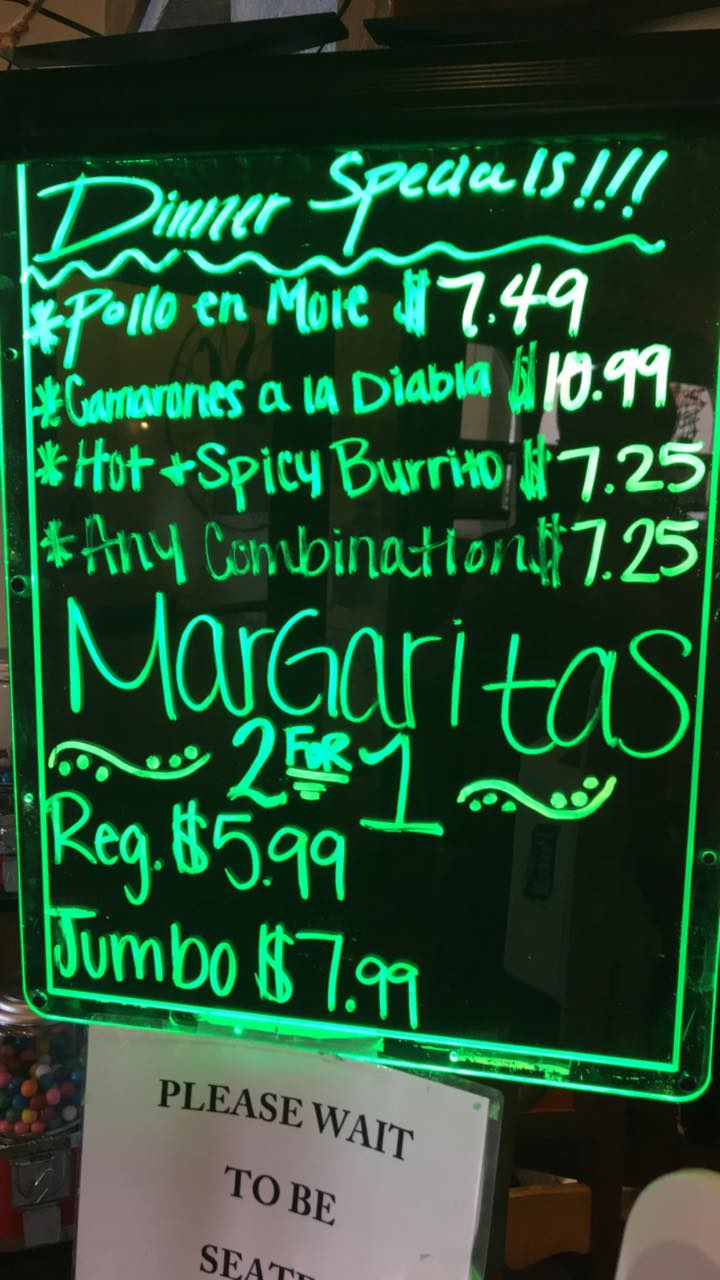 Dinner Specials!!!
*Pollo en Mole $7.49
*Camarones a la Diabla $10.99
*Hot + Spicy Burrito $7.25
*Any Combination $7.25
MarGaritas
2 FOR 1
Reg. $5.99
Jumbo $7.99
PLEASE WAIT
TO BE